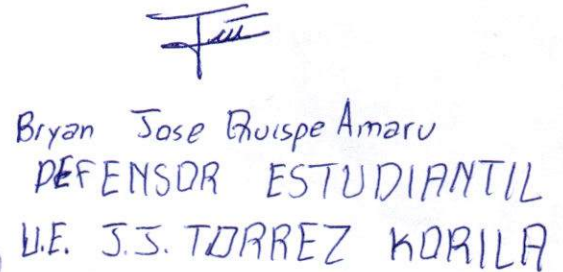 Bryan Jose Quispe Amaru
DEFENSOR ESTUDIANTIL
U.E. J.J. TORREZ KORILA